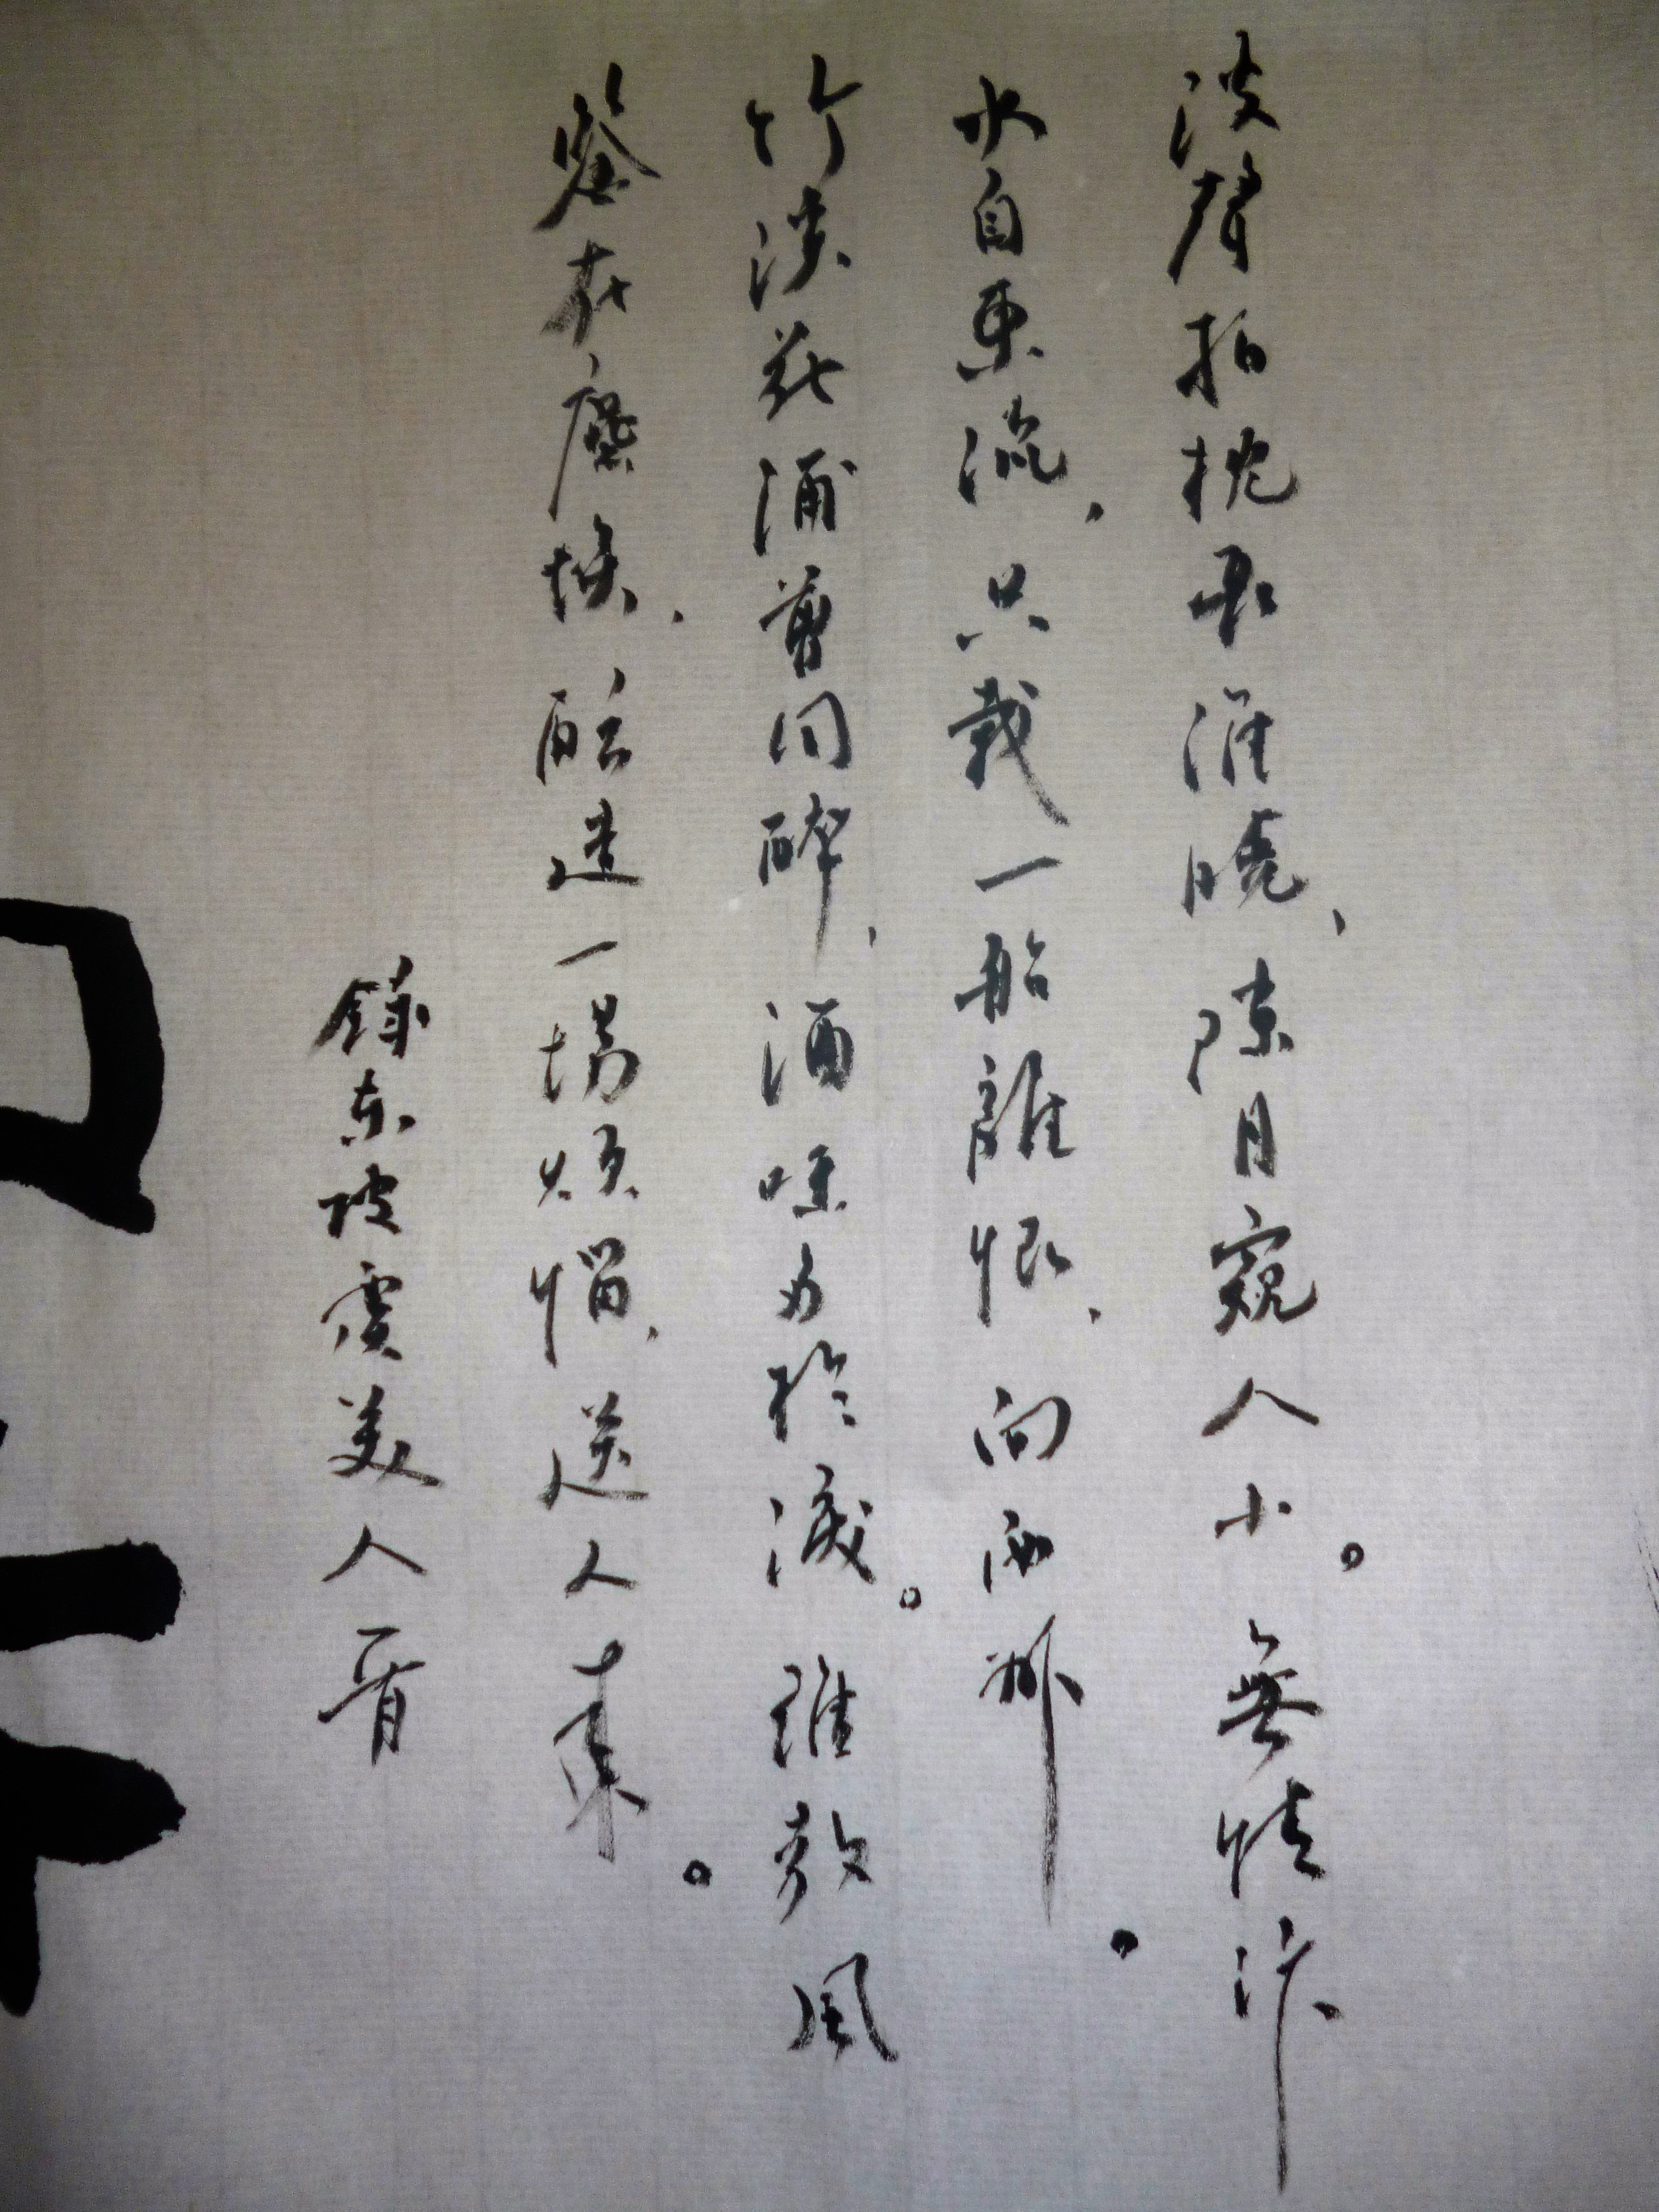 波聲拍枕長淮曉、隙月窺人小。無情汴
水自東流，只載一船離恨、向西州。
竹溪花浦曾同醉、酒味多於淚。誰教風
鑒在塵埃、醞造一場煩惱、送人來。
錄東坡虞美人